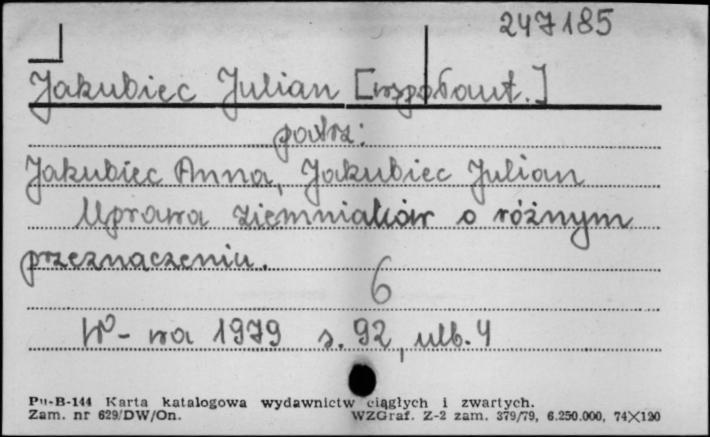 247185
Jakubiec Julian [współaut.]
patrz:
Jakubiec Anna, Jakubiec Julian
Uprawa ziemniaków o różnym
przeznaczeniu.
6
W-wa 1979 s. 92, ulb. 4
Pu-B-144 Karta katalogowa wydawnictw ciągłych i zwartych.
Zam. nr 629/DW/On. WZGraf. Z-2 zam. 379/79, 6.250.000, 74X120